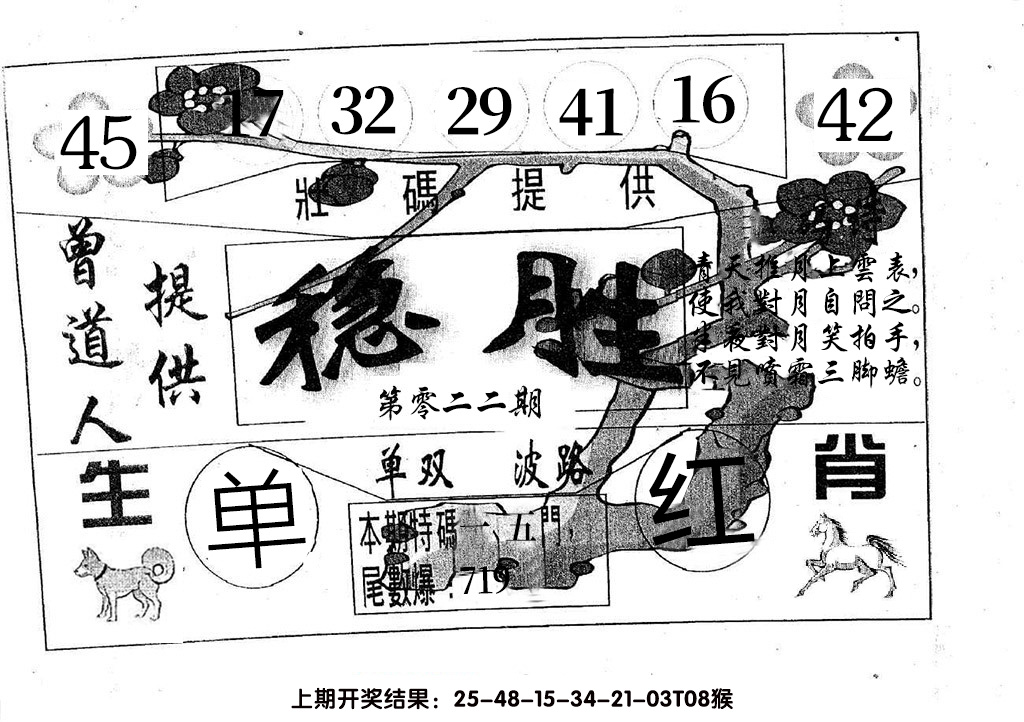 45 17 32 29 41 16 42
壯碼提供
曾道人
提供
稳胜
第零二二期
青天推月上雲表，
使我對月自問之。
對月笑拍手，
不見噴霜三脚蟾。
单双 波路
生肖
单
红
本期特碼一、五門，
尾數爆：719
上期开奖结果：25-48-15-34-21-03T08猴